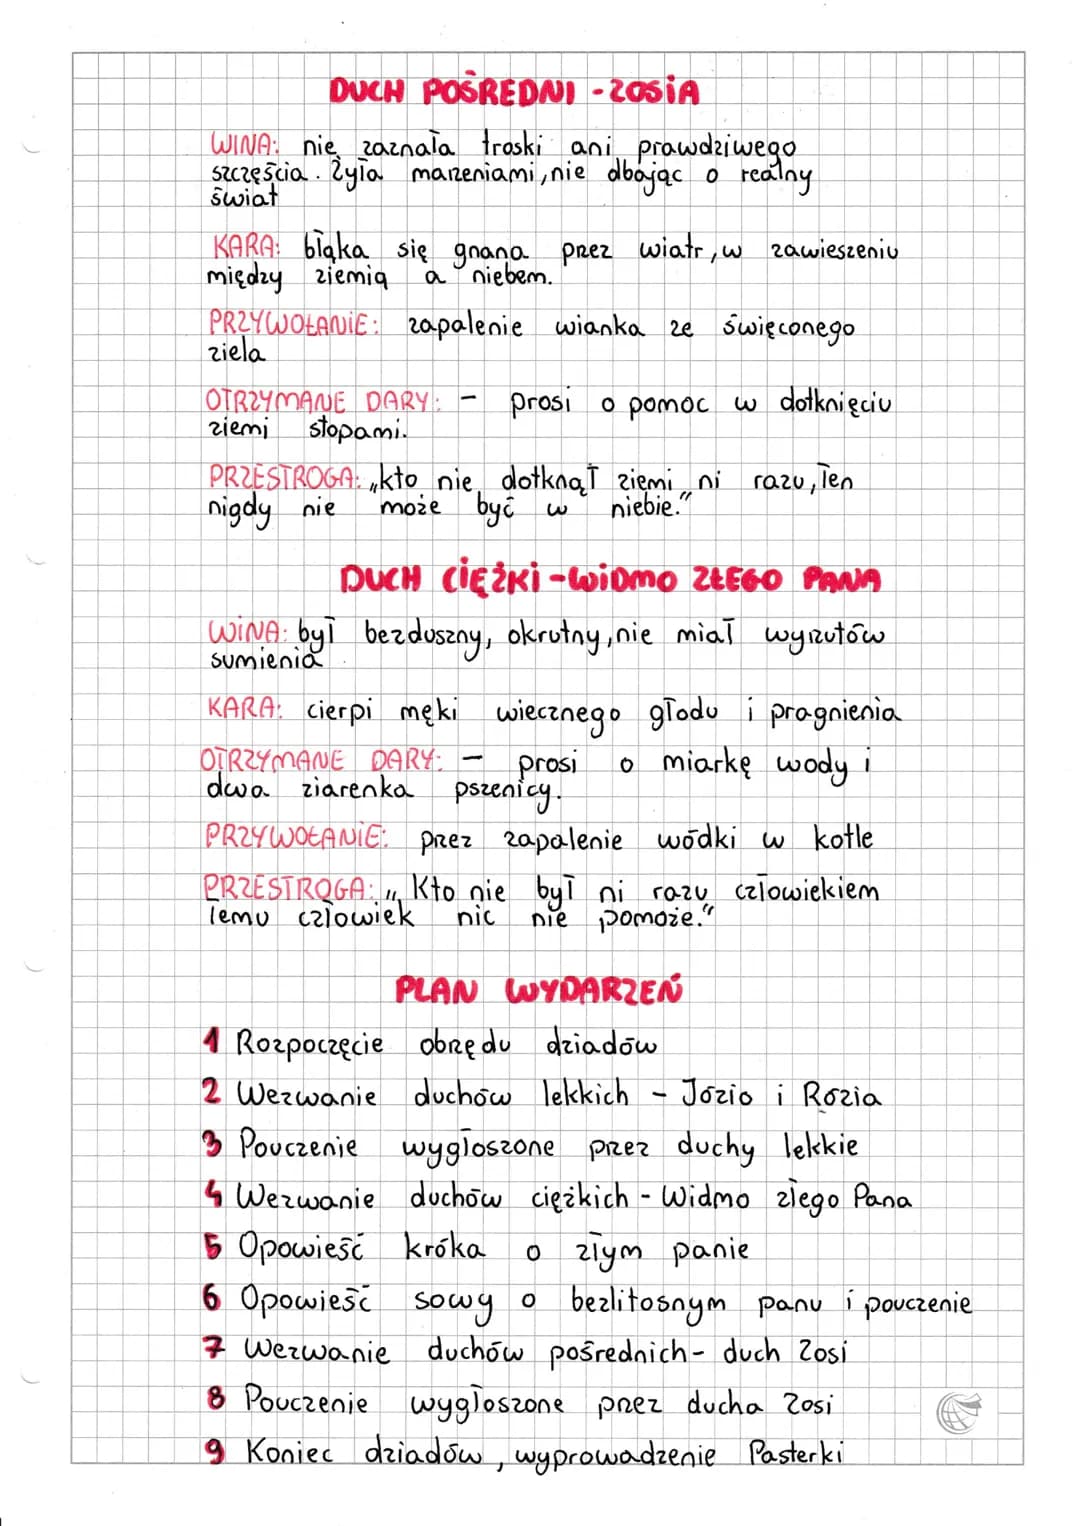 DUCH POŚREDNI - ZOSIA
WINA: nie zaznała troski ani prawdziwego
szczęścia. Żyła marzeniami, nie dbając o realny
świat
KARA: błąka się gnana przez wiatr, w zawieszeniu
między ziemią a niebem.
PRZYWOŁANIE: zapalenie wianka ze święconego
ziela
OTRZYMANE DARY: - prosi o pomoc w dotknięciu
ziemi stopami.
PRZESTROGA: „kto nie dotknął ziemi ni razu, Ten
nigdy nie może być w niebie."
DUCH CIĘŻKI - WIDMO ZŁEGO PANA
WINA: był bezduszny, okrutny, nie miał wyrzutów
sumienia
KARA: cierpi męki wiecznego głodu i pragnienia
OTRZYMANE DARY: - prosi o miarkę wody i
dwa ziarenka pszenicy.
PRZYWOŁANIE: przez zapalenie wódki w kotle
PRZESTROGA: „Kto nie był ni razu człowiekiem
Temu człowiek nic nie pomoże."
PLAN WYDARZEŃ
1 Rozpoczęcie obrzędu dziadów
2 Wezwanie duchów lekkich - Józio i Rózia
3 Pouczenie wygłoszone przez duchy lekkie
4 Wezwanie duchów ciężkich - Widmo złego Pana
5 Opowieść króka o złym panie
6 Opowieść sowy o bezlitosnym panu i pouczenie
7 Wezwanie duchów pośrednich - duch Zosi
8 Pouczenie wygłoszone przez ducha Zosi
9 Koniec dziadów, wyprowadzenie Pasterki